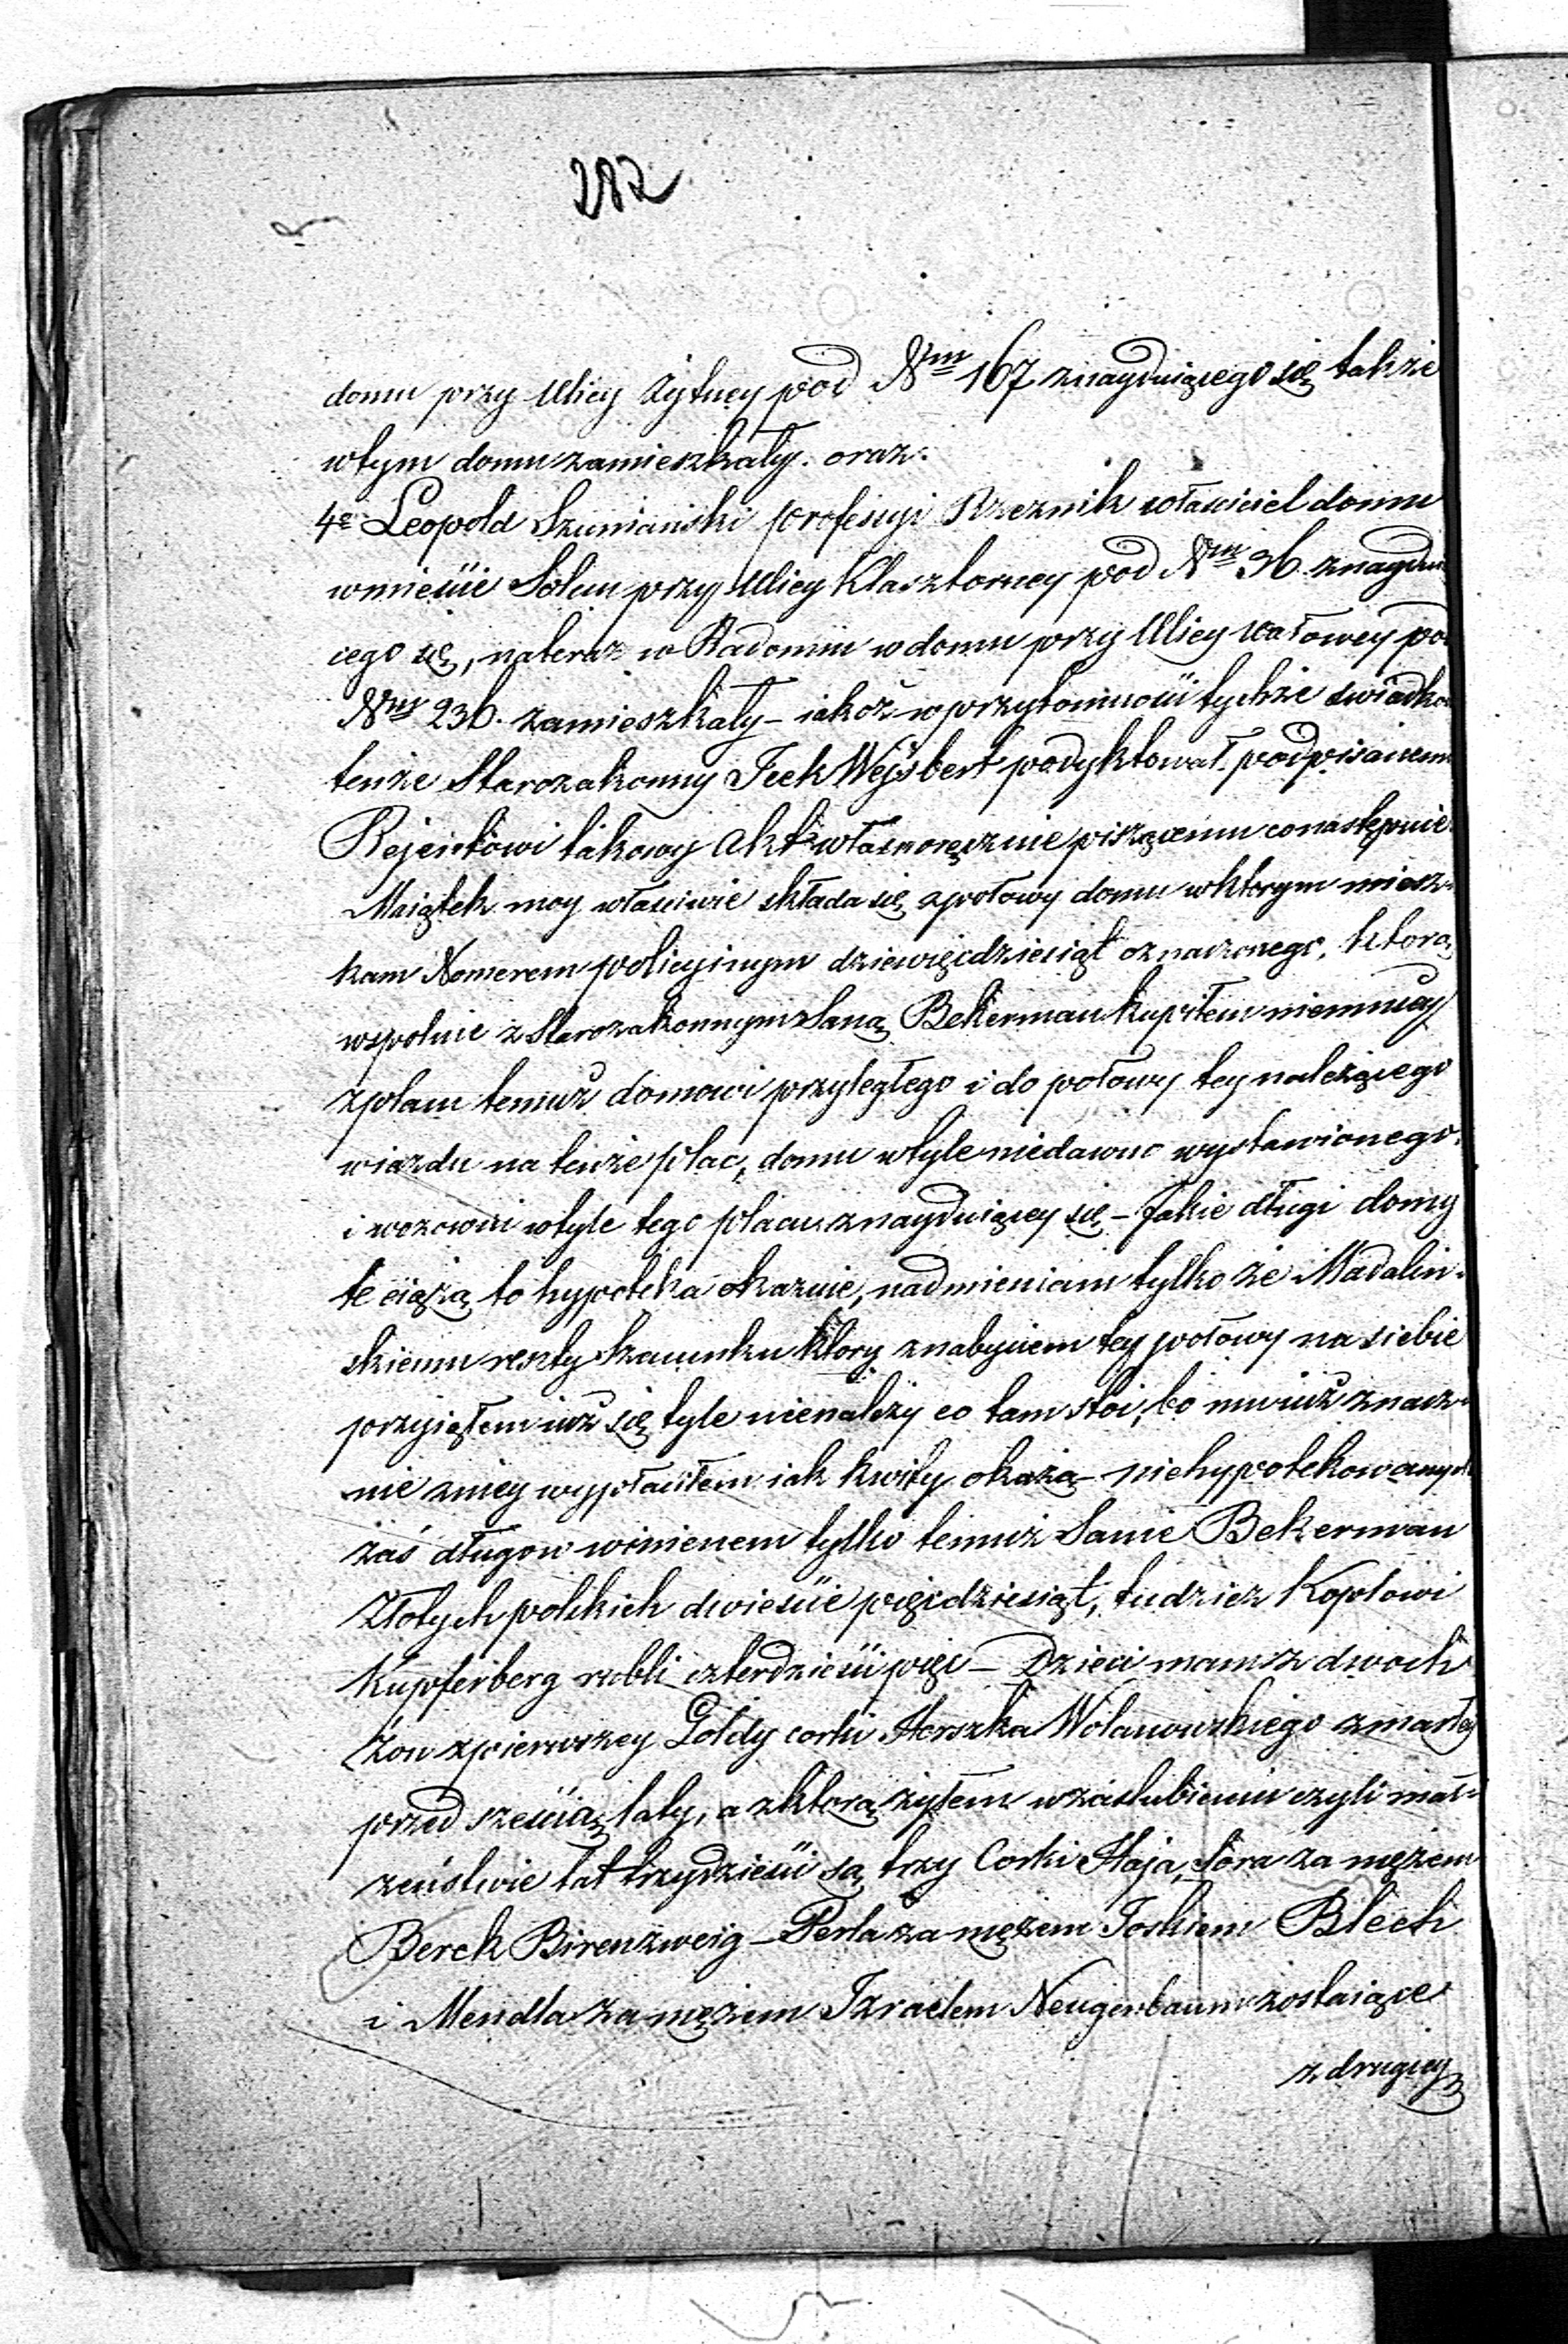 282
domu przy Ulicy Żytney pod Nrm 167 znayduiącego się także
wtym domu zamieszkały. oraz.
4e Leopold Szumianski profesyi Rzeznik właściciel domu
wmieście Solcu przy Ulicy Klasztorney pod Nrm 36. znaydu
cego się, nateraz w Radomiu w domu przy Ulicy wałowey pod
Nrm 236. zamieszkały – iakoż w przytomności tychże swiadko
tenże Starozakonny Icek Wejsbert podyktował podpisanemu
Rejentowi takowy Akt własnoręcznie piszącemu co następuie
Maiątek moy właściwie składa się zpołowy domu wktorym miesz-
kam Nomerem policyinym dziewięćdziesiąt oznaczonego, ktorą
wspolnie z Starozakonnym Saną Bekerman kupiłem niemniey
zplacu temuż domowi przyległego i do połowy tey należącego
wiazdu na tenże plac, domu wtyle niedawno wystawionego.
i wozowni wtyle tego placu znayduiącey się – Jakie długi domy
te ciążą to hypoteka okazuie, nadmieniam tylko że Madalin-
skiemu reszty Szacunku ktory znabyciem tey połowy na siebie
przyiąłem iuż się tyle nienależy co tam stoi, bo mu iuż znacz-
nie zniey wypłaciłem iak kwity okażą – niehypotekowanych
zaś długow winienem tylko temuż Sanie Bekerman
Złotych polskich dwieście pięćdziesiąt, tudzież Koplowi
Kupferberg rubli czterdzieści pięć – Dzieci mam z dwoch
Żon zpierwszey Goldy corki Herszka Wolanowskiego zmarłey
przed sześcią laty, a zktorą żyłem w zaślubieniu czyli mał-
żeństwie lat trzydzieści są trzy Corki Haja, Sora za mężem
Berek Birenzweig – Perla za mężem Joskiem Blech
i Mendla za mężem Izraelem Neugenbaum zostaiące
z drugiey